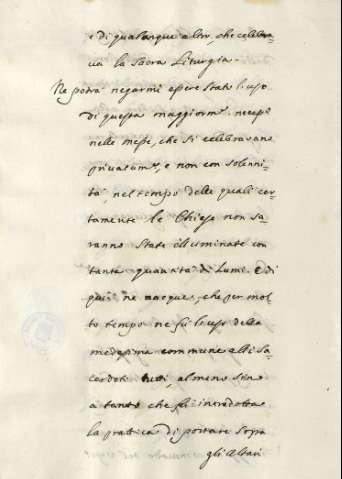 e di qualunque altro, che celebra=
va la Sacra Liturgia.
Ne potrà negarmi essere stato l'uso
di questa maggiorm.e necess.o
nelle messe, che si celebravano
privatam.e, e non con solenni=
tà, nel tempo delle quali cer=
tamente le Chiese non sa=
ranno state illuminate con
tanta quantità di Lumi. E di
qui ne nacque, che per mol=
to tempo ne fù l'uso della
medesima commune alli Sa=
cerdoti tutti, almeno sino
a tanto che fù introdotta
la prattica di portare sopra
gli Altari